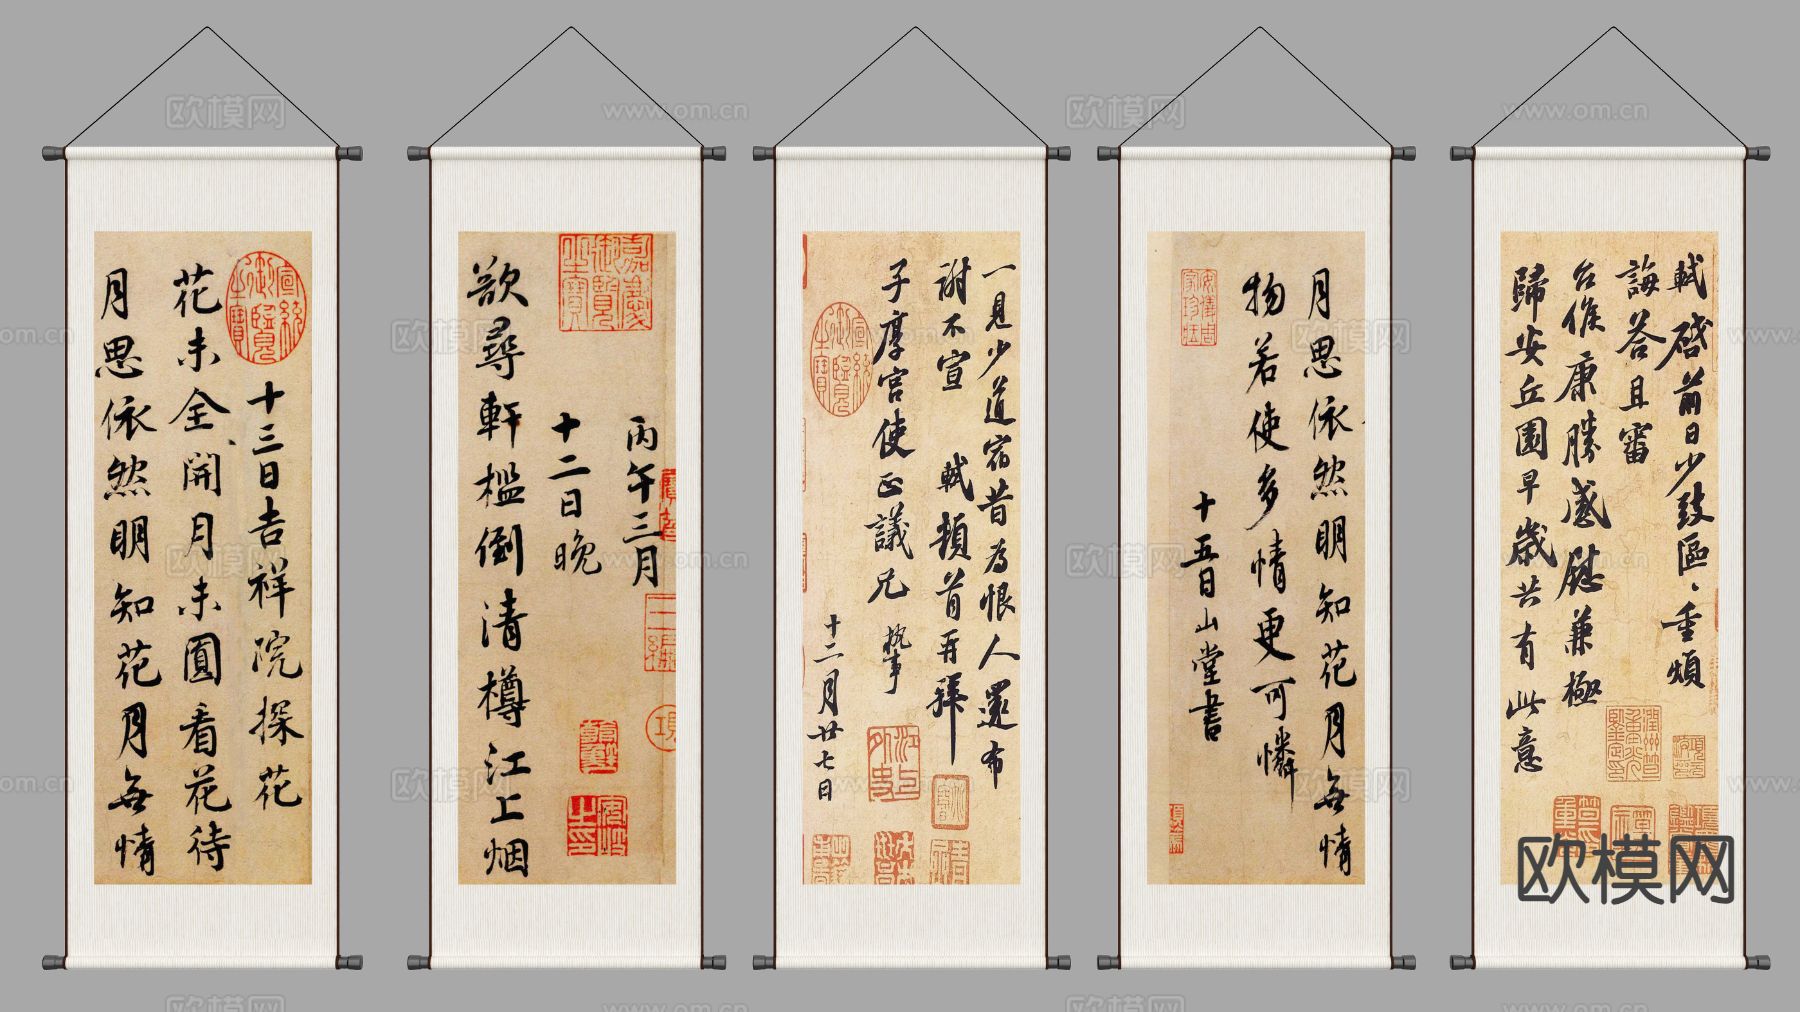 十三日吉祥院探花
花未全開月未圓看花待
月思依然明知花月無情
丙午三月
十二日晚
欲尋軒檻倒清樽江上烟
一見少道宿昔為恨人還布
謝不宣 軾頓首再拜
子厚宮使正議兄 執事
十二月廿七日
月思依然明知花月無情
物若使多情更可憐
十五日山堂書
軾啓前日少致區、重煩
誨答且審
台候康勝感慰兼極
歸安丘園早歲共有此意
欧模网
www.om.cn
欧模网
www.om.cn
欧模网